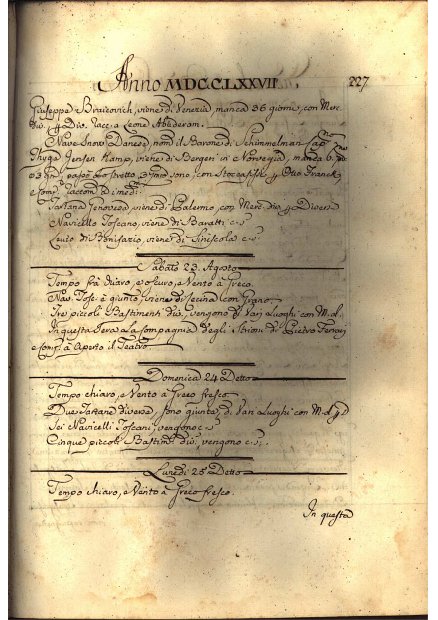 Anno MDCCLXXVII 227
Giuseppe Braicovich, viene di Venezia, manca 36 giorni, con Merc.
div. p Div. racc. a Leone Abuderam.
Nave Snow Danese nom. il Barone di Schimmelman Cap.no
Thyge Jensen Kamp, viene di Bergen in Norvegia, manca
3 giorni sono, con Stocafiss p Otto Franck
e Comp. raccom. a i medi.
Tartana Genovese viene di Palermo, con Merc. div. p Diversi
Navicello Toscano, viene di Baratti c.s.
Leuto di Bonifazio, viene di Siniscola c.s.
Sabato 23. Agosto
Tempo frà chiaro, e oscuro, e Vento à Greco
Nav. Tosc. è giunto, viene di Cecina con Grano.
Tre piccoli Bastimenti div. vengono di Varj Luoghi con M. d.
In questa Sera la Compagnia degli Istrioni di Pietro
e Comp. à Aperto il Teatro
Domenica 24 Detto
Tempo chiaro, e Vento à Greco fresco
Due Tartane diverse, sono giunte, di Varj Luoghi con M. d. p D
Sei Navicelli Toscani, vengono c.s
Cinque piccoli Bastim. div. vengono c.s.
Lunedì 25 Detto
Tempo chiaro, e Vento à Greco fresco.
In questa